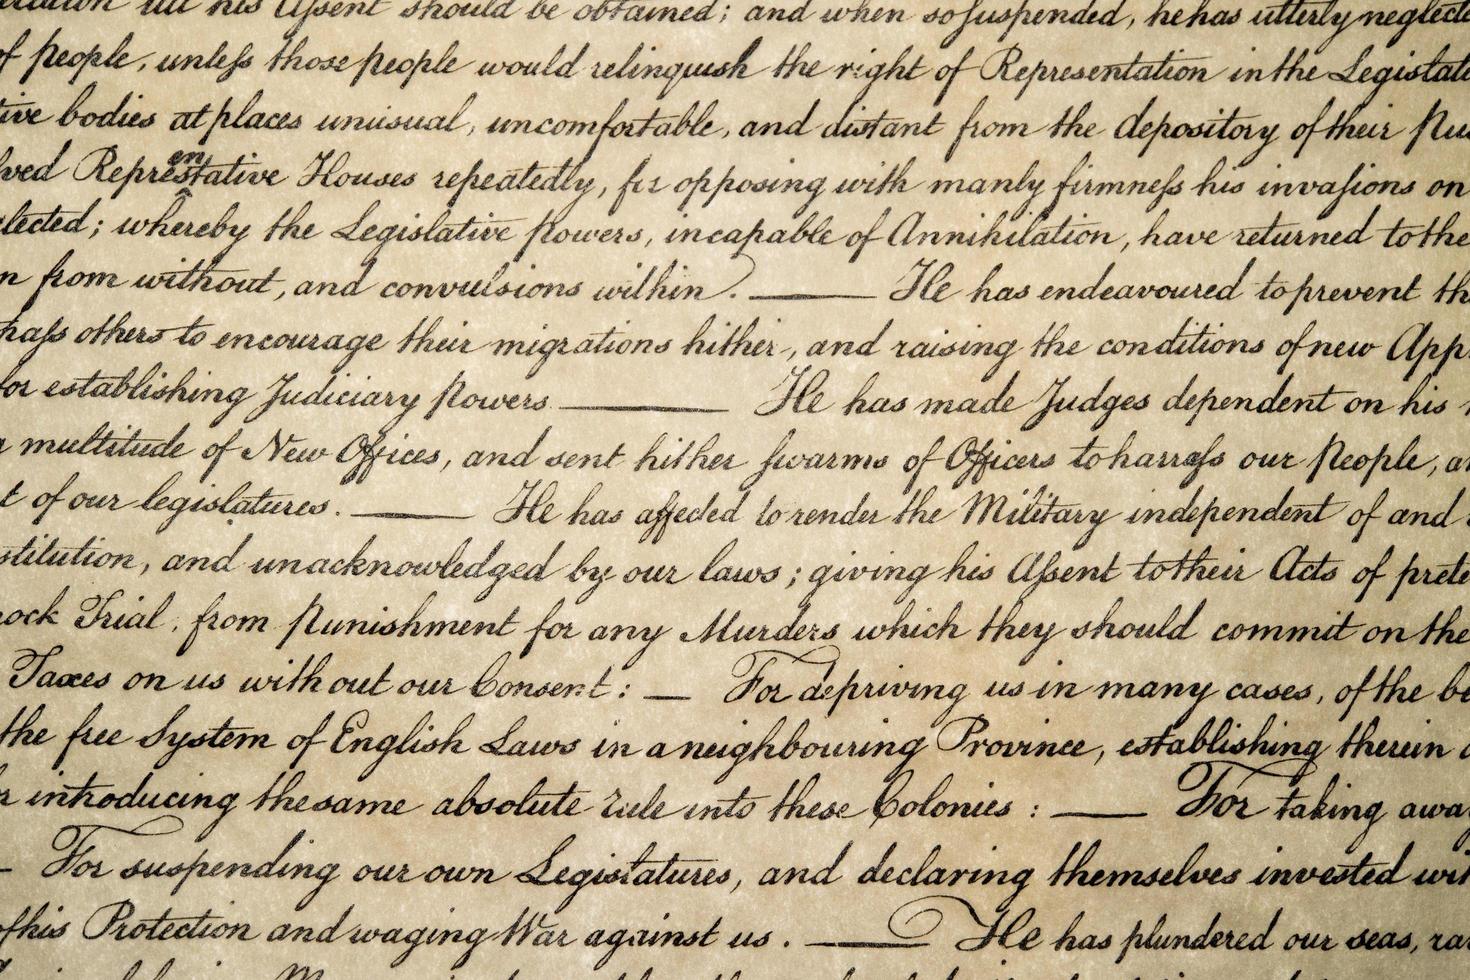 till his Aſsent should be obtained; and when so suspended, he has utterly neglecte
of people, unleſs those people would relinquish the right of Representation in the Legislat
tive bodies at places unusual, uncomfortable, and distant from the depository of their Pu
lved Represtative Houses repeatedly, for opposing with manly firmneſs his invaſions on
en
lected; whereby the Legislative powers, incapable of Annihilation, have returned to the
n from without, and convulsions within. — He has endeavoured to prevent th
paſs others to encourage their migrations hither, and raising the conditions of new App
for establishing Judiciary powers. — He has made Judges dependent on his
a multitude of New Offices, and sent hither ſwarms of Officers to harraſs our People, a
t of our legislatures. — He has affected to render the Military independent of and
stitution, and unacknowledged by our laws; giving his Aſsent to their Acts of prete
mock Trial, from Punishment for any Murders which they should commit on the
Taxes on us without our Consent: — For depriving us in many cases, of the be
the free System of English Laws in a neighbouring Province, establishing therein
r introducing the same absolute rule into these Colonies: — For taking awa
— For suspending our own Legislatures, and declaring themselves invested wit
of his Protection and waging War against us. — He has plundered our seas, ra